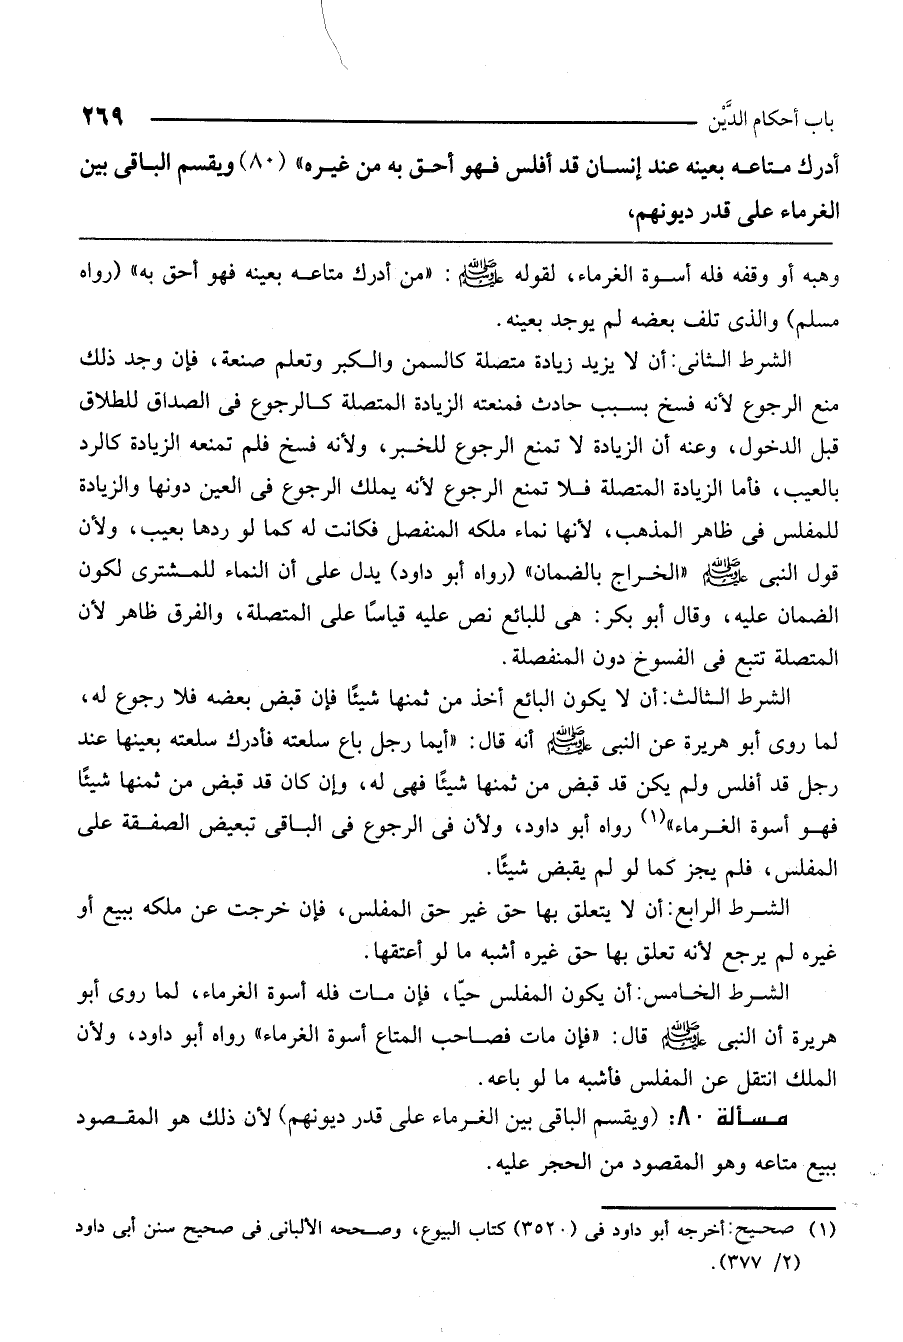 باب أحكام الدَّيْن ٢٦٩
أدرك متاعه بعينه عند إنسان قد أفلس فهو أحق به من غيره» (٨٠) ويقسم الباقى بين
الغرماء على قدر ديونهم،
وهبه أو وقفه فله أسوة الغرماء، لقوله ﷺ: «من أدرك متاعه بعينه فهو أحق به» (رواه
مسلم) والذى تلف بعضه لم يوجد بعينه.
الشرط الثانى: أن لا يزيد زيادة متصلة كالسمن والكبر وتعلم صنعة، فإن وجد ذلك
منع الرجوع لأنه فسخ بسبب حادث فمنعته الزيادة المتصلة كالرجوع فى الصداق للطلاق
قبل الدخول، وعنه أن الزيادة لا تمنع الرجوع للخبر، ولأنه فسخ فلم تمنعه الزيادة كالرد
بالعيب، فأما الزيادة المتصلة فلا تمنع الرجوع لأنه يملك الرجوع فى العين دونها والزيادة
للمفلس فى ظاهر المذهب، لأنها نماء ملكه المنفصل فكانت له كما لو ردها بعيب، ولأن
قول النبى ﷺ «الخراج بالضمان» (رواه أبو داود) يدل على أن النماء للمشترى لكون
الضمان عليه، وقال أبو بكر: هى للبائع نص عليه قياسًا على المتصلة، والفرق ظاهر لأن
المتصلة تتبع فى الفسوخ دون المنفصلة.
الشرط الثالث: أن لا يكون البائع أخذ من ثمنها شيئًا فإن قبض بعضه فلا رجوع له،
لما روى أبو هريرة عن النبى ﷺ أنه قال: «أيما رجل باع سلعته فأدرك سلعته بعينها عند
رجل قد أفلس ولم يكن قد قبض من ثمنها شيئًا فهى له، وإن كان قد قبض من ثمنها شيئًا
فهو أسوة الغرماء»(١) رواه أبو داود، ولأن فى الرجوع فى الباقى تبعيض الصفقة على
المفلس، فلم يجز كما لو لم يقبض شيئًا.
الشرط الرابع: أن لا يتعلق بها حق غير حق المفلس، فإن خرجت عن ملكه ببيع أو
غيره لم يرجع لأنه تعلق بها حق غيره أشبه ما لو أعتقها.
الشرط الخامس: أن يكون المفلس حيّا، فإن مات فله أسوة الغرماء، لما روى أبو
هريرة أن النبى ﷺ قال: «فإن مات فصاحب المتاع أسوة الغرماء» رواه أبو داود، ولأن
الملك انتقل عن المفلس فأشبه ما لو باعه.
مسألة ٨٠: (ويقسم الباقى بين الغرماء على قدر ديونهم) لأن ذلك هو المقصود
ببيع متاعه وهو المقصود من الحجر عليه.
(١) صحيح: أخرجه أبو داود فى (٣٥٢٠) كتاب البيوع، وصححه الألبانى فى صحيح سنن أبى داود
(٢/ ٣٧٧).